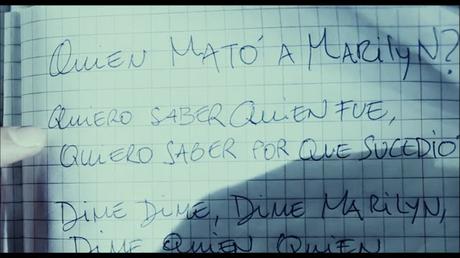 QUIEN MATÓ A MARILYN?
QUIERO SABER QUIEN FUE,
QUIERO SABER POR QUE SUCEDIÓ
DIME DIME, DIME MARILYN,
DIME QUIEN QUIEN